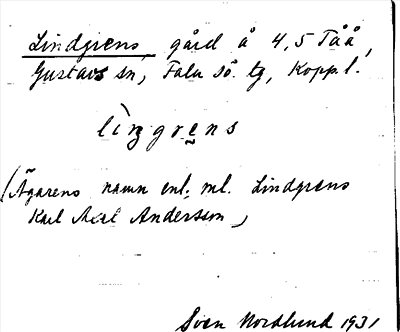 Lindgrens, gård å 4,5 Tåå,
Gustavs sn, Falu sö. tg, Kopp. l.
lìŋgre̬ns
(Ägarens namn enl. ml. Lindgrens
Karl Axel Andersson)
Sven Nordlund 1931